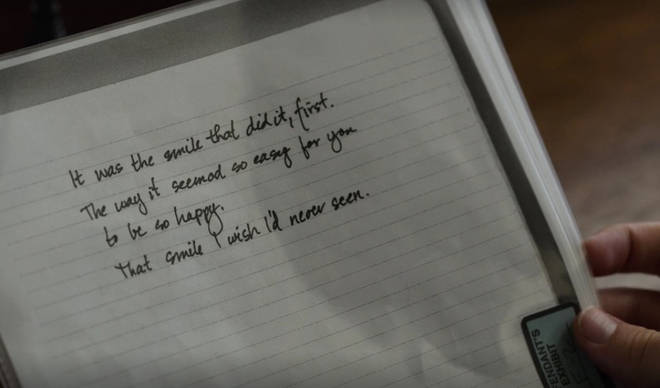 It was the smile that did it, first.
The way it seemed so easy for you
to be so happy.
That smile I wish I'd never seen.
ENDANT'S
EXHIBIT